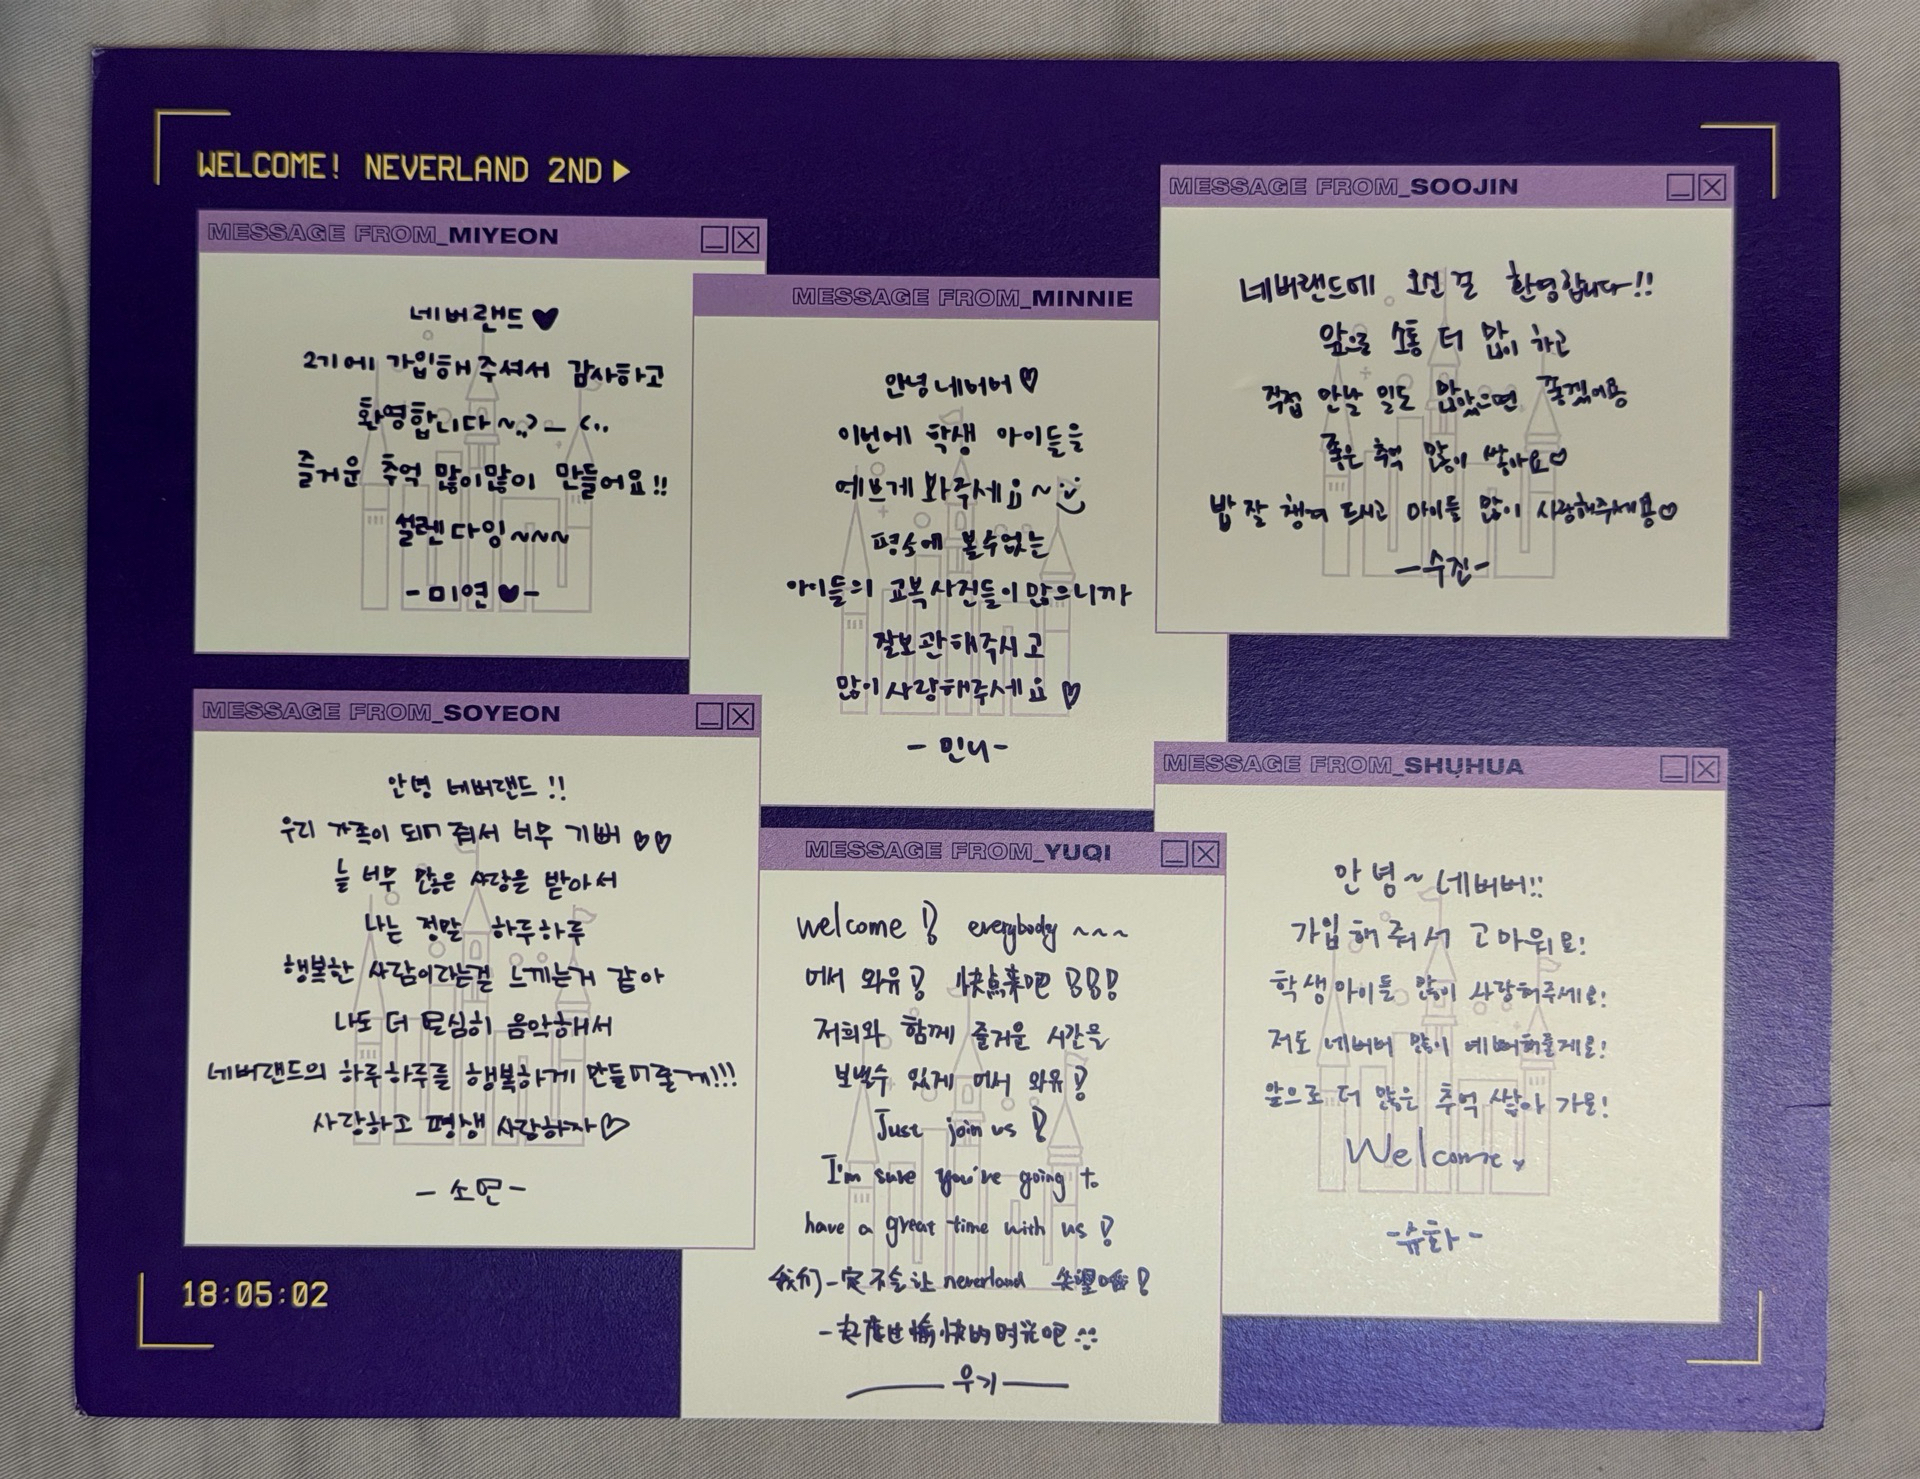 WELCOME! NEVERLAND 2ND
MESSAGE FROM_MIYEON
네버랜드♥
2기에 가입해주셔서 감사하고
환영합니다~
즐거운 추억 많이많이 만들어요!!
설렌다잉~~~
-미연♥-
MESSAGE FROM_MINNIE
안녕 네버버♡
이번에 학생 아이들을
예쁘게 봐주세요~
평소에 볼수없는
아이들의 교복사진들이 많으니까
잘보관해주시고
많이사랑해주세요♡
-민니-
MESSAGE FROM_SOOJIN
네버랜드에 오신걸 환영합니다!!
앞으로 소통 더 많이 하고
직접 만날 일도 많았으면 좋겠어용
좋은 추억 많이 쌓아요♡
밥 잘 챙겨 드시고 아이들 많이 사랑해주세용♡
-수진-
MESSAGE FROM_SOYEON
안녕 네버랜드!!
우리 가족이 되어줘서 너무 기뻐♡♡
늘 너무 많은 사랑을 받아서
나는 정말 하루하루
행복한 사람이라는걸 느끼는거 같아
나도 더 열심히 음악해서
네버랜드의 하루하루를 행복하게 만들어줄게!!!
사랑하고 평생 사랑하자♡
-소연-
MESSAGE FROM_YUQI
welcome! everybody~~~
어서 와유! 快点来吧!!!
저희와 함께 즐거운 시간을
보낼수 있게 어서 와유!
Just join us!
I'm sure you're going to
have a great time with us!
我们一定不会让 neverland 失望哦!
一起度过愉快的时光吧
우기
MESSAGE FROM_SHUHUA
안녕~네버버!!
가입해줘서 고마워요!
학생아이들 많이 사랑해주세요!
저도 네버버 많이 예뻐해줄게요!
앞으로 더 많은 추억 쌓아 가요!
Welcome
-슈화-
18:05:02